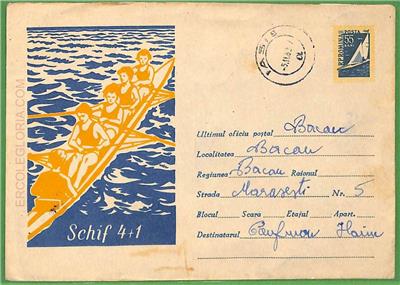 ERCOLEGLORIA.COM
IASI
-5.11.62
R.P.ROMINA
POSTA
55
BANI
Ultimul oficiu poștal Bacau
Localitatea Bacau
Regiunea Bacau Raionul
Strada Marasesti Nr. 5
Blocul Scara Etajul Apart.
Destinatarul Haim
Schif 4+1